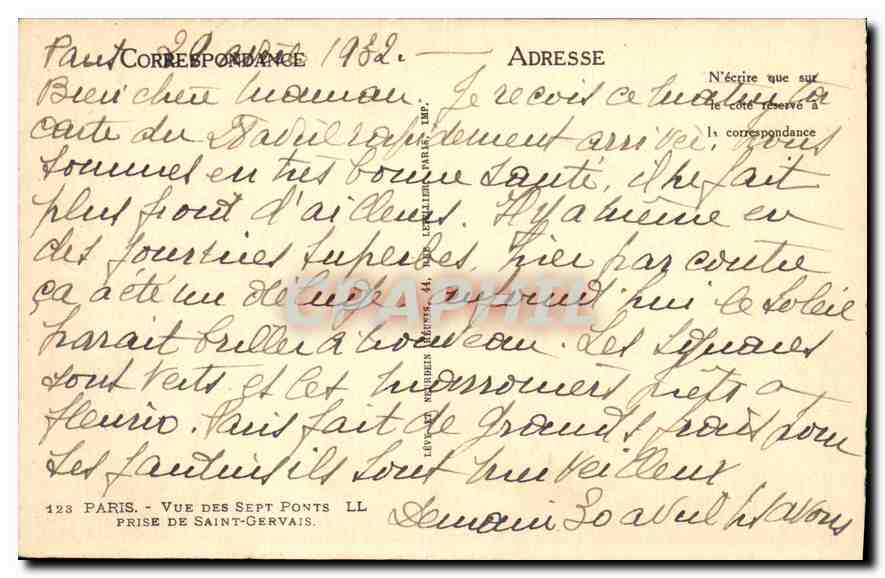 Paris 29 avril 1932. —
CORRESPONDANCE
ADRESSE
N'écrire que sur
le côté réservé à
la correspondance
Bien chère Maman. Je reçois ce matin ta
carte du avril rapidement arrivée. Nous
sommes en très bonne santé, il ne fait
plus froid d'ailleurs. Il y a même eu
des journées superbes, hier par contre
ça a été un déluge, aujourd'hui le soleil
parait briller à nouveau. Les squares
sont verts et les marronniers prêts à
fleurir. Paris fait de grands frais pour
ses jardins ils sont merveilleux
Demain 30 avril ns avons
LÉVY ET NEURDEIN RÉUNIS, 44, RUE LETELLIER, PARIS, IMP.
CPAPHIL
123 PARIS. - VUE DES SEPT PONTS LL
PRISE DE SAINT-GERVAIS.